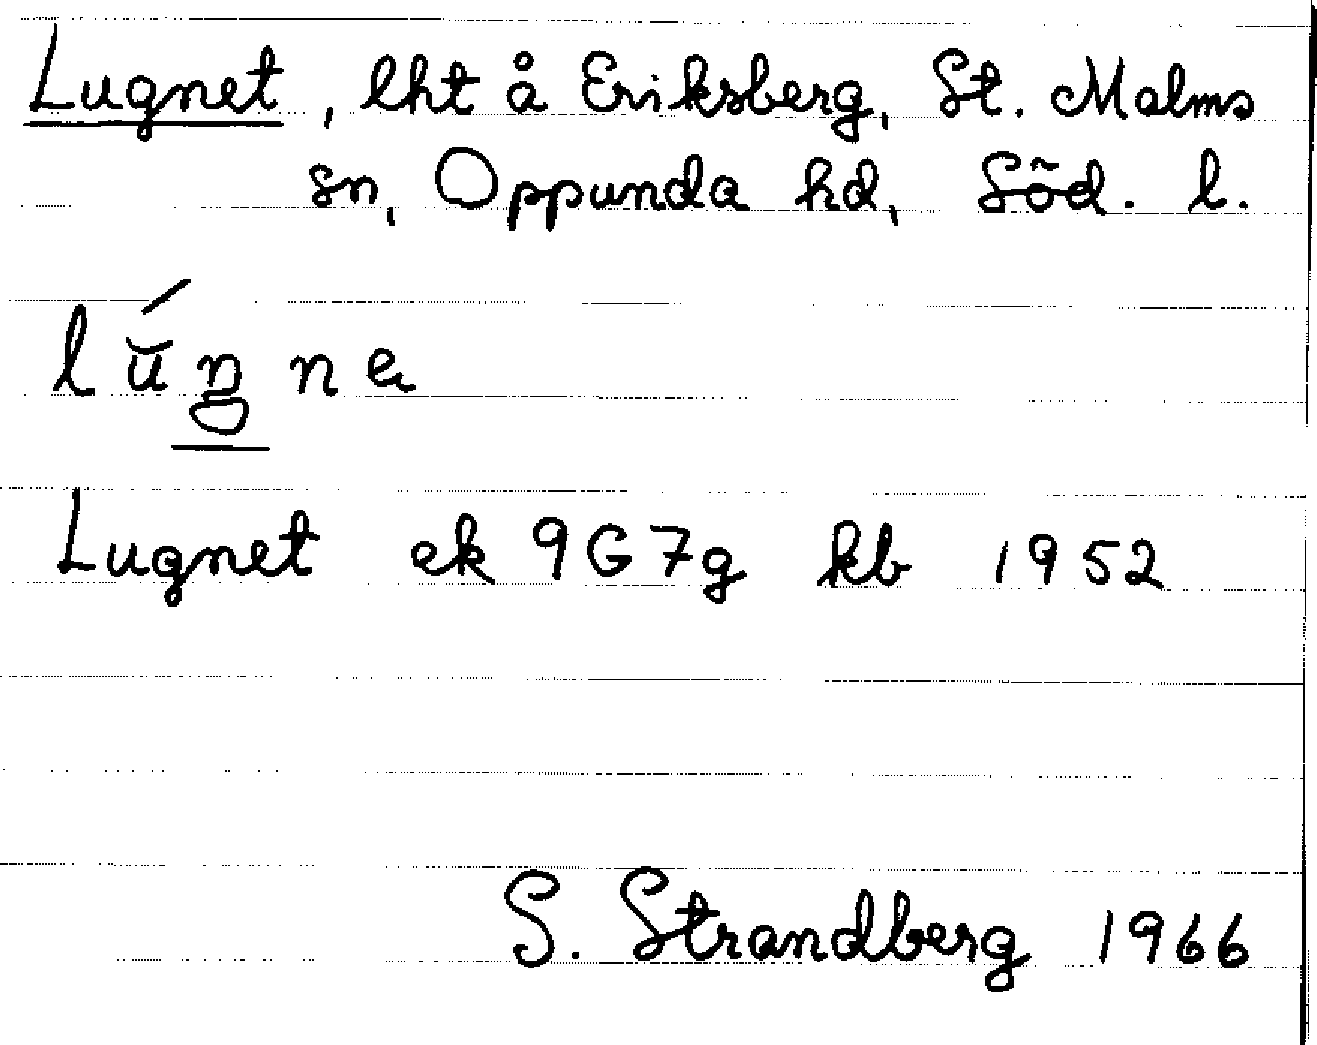 Lugnet, lht å Eriksberg, St. Malms
sn, Oppunda hd, Söd. l.
Lugnet ek 9G7g kb 1952
S. Strandberg 1966